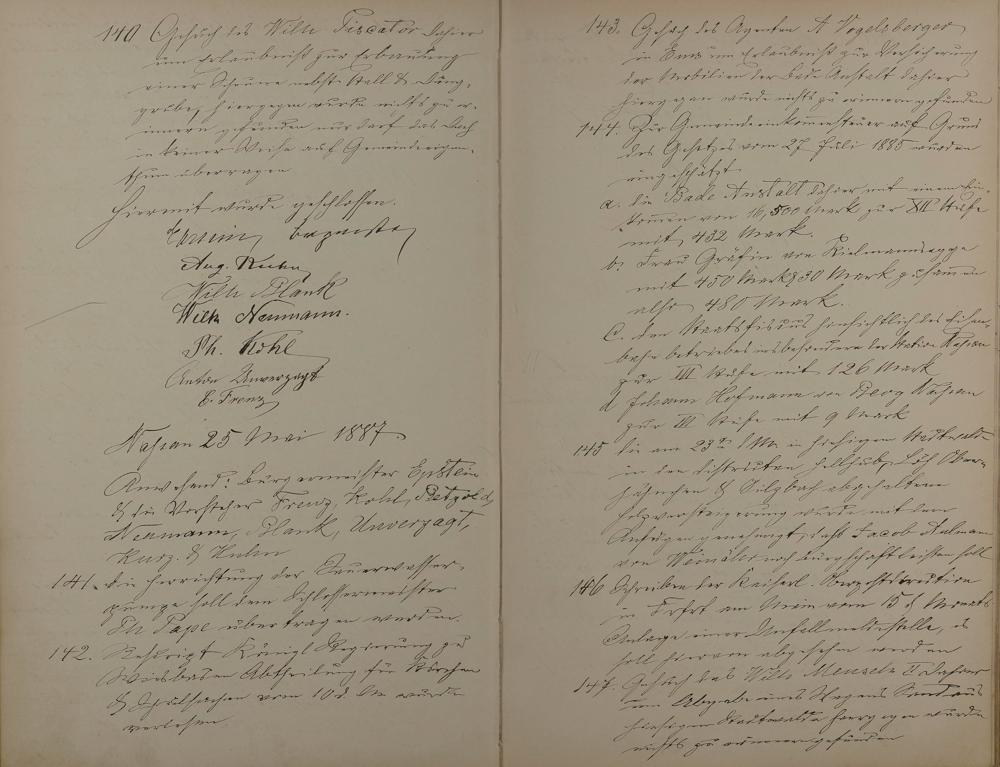 140 Gesuch des Wilh. Piscator dahier
um Erlaubniß zur Erbauung
einer Scheune nebst Stall & Dung-
grube, hiergegen wurde nichts zu er-
innern gefunden nur darf das Dach
in keiner Weise auf Gemeindeeigen-
thum überragen
Hiermit wurde geschlossen.
Aug. Kuhn
Wilh Blank
Wilh Neumann.
Ph. Kohl
Anton Unverzagt
E. Frenz
Nassau 25 Mai 1887.
Anwesend: Bürgermeister Epstein
& die Vorsteher Frenz, Kohl, Petzold,
Neumann, Blank, Unverzagt,
Kurz. & Kuhn
141. Die Herrichtung der
pumpe soll dem Schlossermeister
Ph Pape übertragen werden.
142. Rescript Königl Regierung zu
Wiesbaden Abtheilung für Kirchen
& Schulsachen vom 10 d. Mts wurde
verlesen.
143. Gesuch des Agenten A Vogelsberger
in Ems um Erlaubniß zur Versicherung
der Mobilien der Bade Anstalt dahier
hiergegen wurde nichts zu erinnern gefunden
144. Zur Gemeindeeinkommensteuer auf Grund
des Gesetzes vom 27 Juli 1885 wurden
eingeschätzt
a. die Bade Anstalt dahier mit einem Ein-
kommen von 16,500 Mark zur XII Stufe
mit 432 Mark.
b. Frau Gräfin von Kielmannsegge
mit 450 Mark & 30 Mark zusammen
also 480 Mark.
c. den Staatsfiscus hinsichtlich des Eisen-
bahnbetriebes insbesondere der Station Nassau
zur III Stufe mit 126 Mark
d Johann Hofmann von Berg Nassau
zur III Stufe mit 9 Mark
145 Die am 23ten d Mts in hiesigem Stadtwalde
in den Distrikten
& Sulzbach abgehaltene
Holzversteigerung wurde mit dem
Anfügen genehmigt, daß Jacob
von noch Bürgschaft leisten soll
146 Schreiben der Kaiserl. Oberpostdirection
in Frkft am Main vom 15 d Monats
Anlage einer Unfallmeldestelle, es
soll hiervon abgesehen werden
147. Gesuch des Wilh II dahier
um Abgabe eines Wagens Sand aus
hiesigem Stadtwalde hiergegen wurde
nichts zu erinnern gefunden